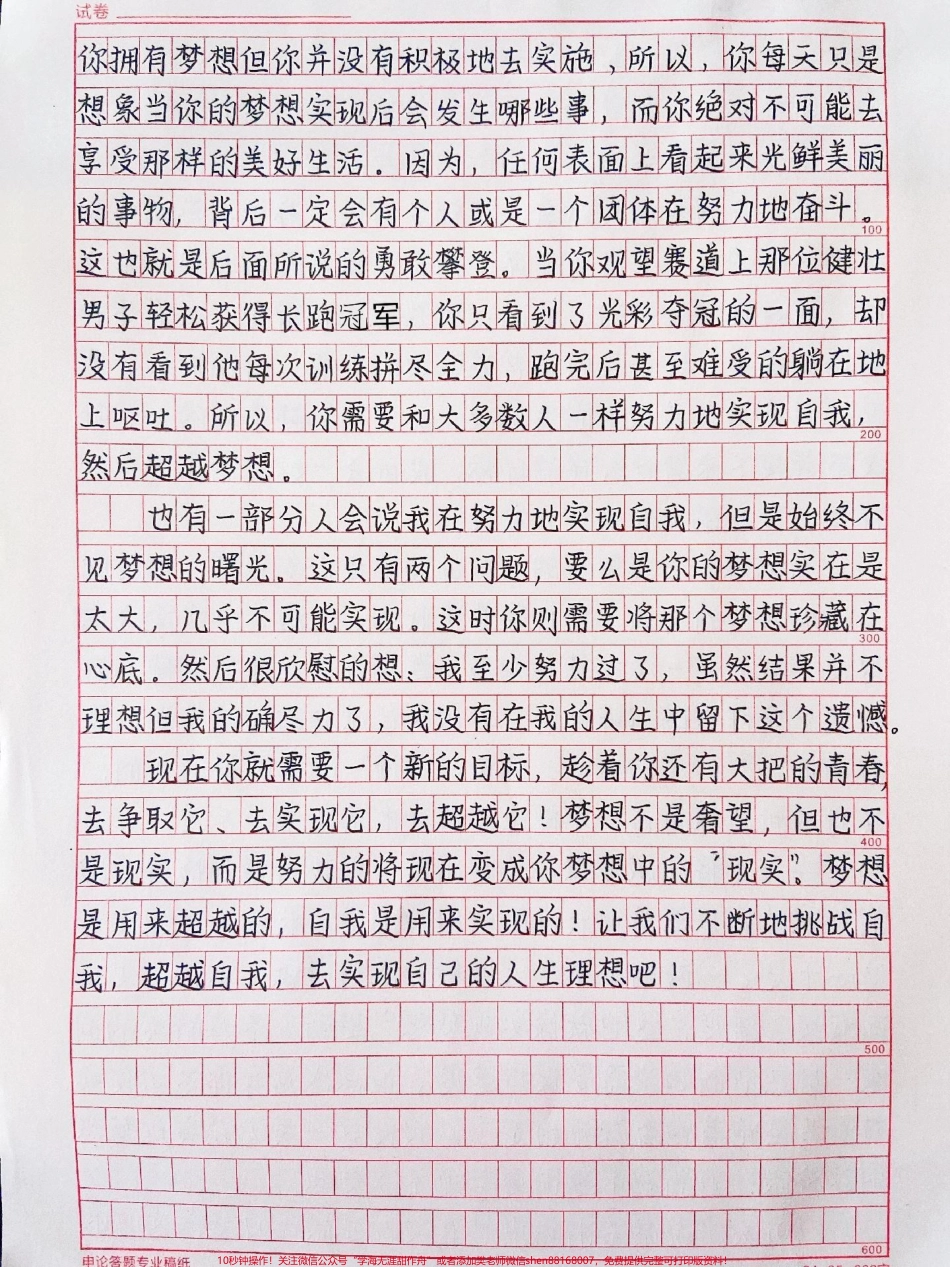 试卷
你拥有梦想但你并没有积极地去实施，所以，你每天只是
想象当你的梦想实现后会发生哪些事，而你绝对不可能去
享受那样的美好生活。因为，任何表面上看起来光鲜美丽
的事物，背后一定会有个人或是一个团体在努力地奋斗。
100
这也就是后面所说的勇敢攀登。当你观望赛道上那位健壮
男子轻松获得长跑冠军，你只看到了光彩夺冠的一面，却
没有看到他每次训练拼尽全力，跑完后甚至难受的躺在地
上呕吐。所以，你需要和大多数人一样努力地实现自我，
200
然后超越梦想。
也有一部分人会说我在努力地实现自我，但是始终不
见梦想的曙光。这只有两个问题，要么是你的梦想实在是
太大，几乎不可能实现。这时你则需要将那个梦想珍藏在
300
心底。然后很欣慰的想：我至少努力过了，虽然结果并不
理想但我的确尽力了，我没有在我的人生中留下这个遗憾。
现在你就需要一个新的目标，趁着你还有大把的青春，
去争取它、去实现它，去超越它！梦想不是奢望，但也不
400
是现实，而是努力的将现在变成你梦想中的“现实”。梦想
是用来超越的，自我是用来实现的！让我们不断地挑战自
我，超越自我，去实现自己的人生理想吧！
500
600
申论答题专业稿纸
10秒钟操作！关注微信公众号“学海无涯甜作舟”或者添加樊老师微信shen88168007，免费提供完整可打印版资料！